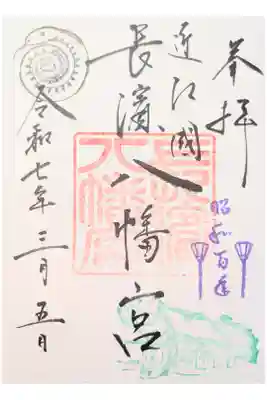 奉拝
昭和百年
近江國
長濱八幡宮
令和七年三月五日